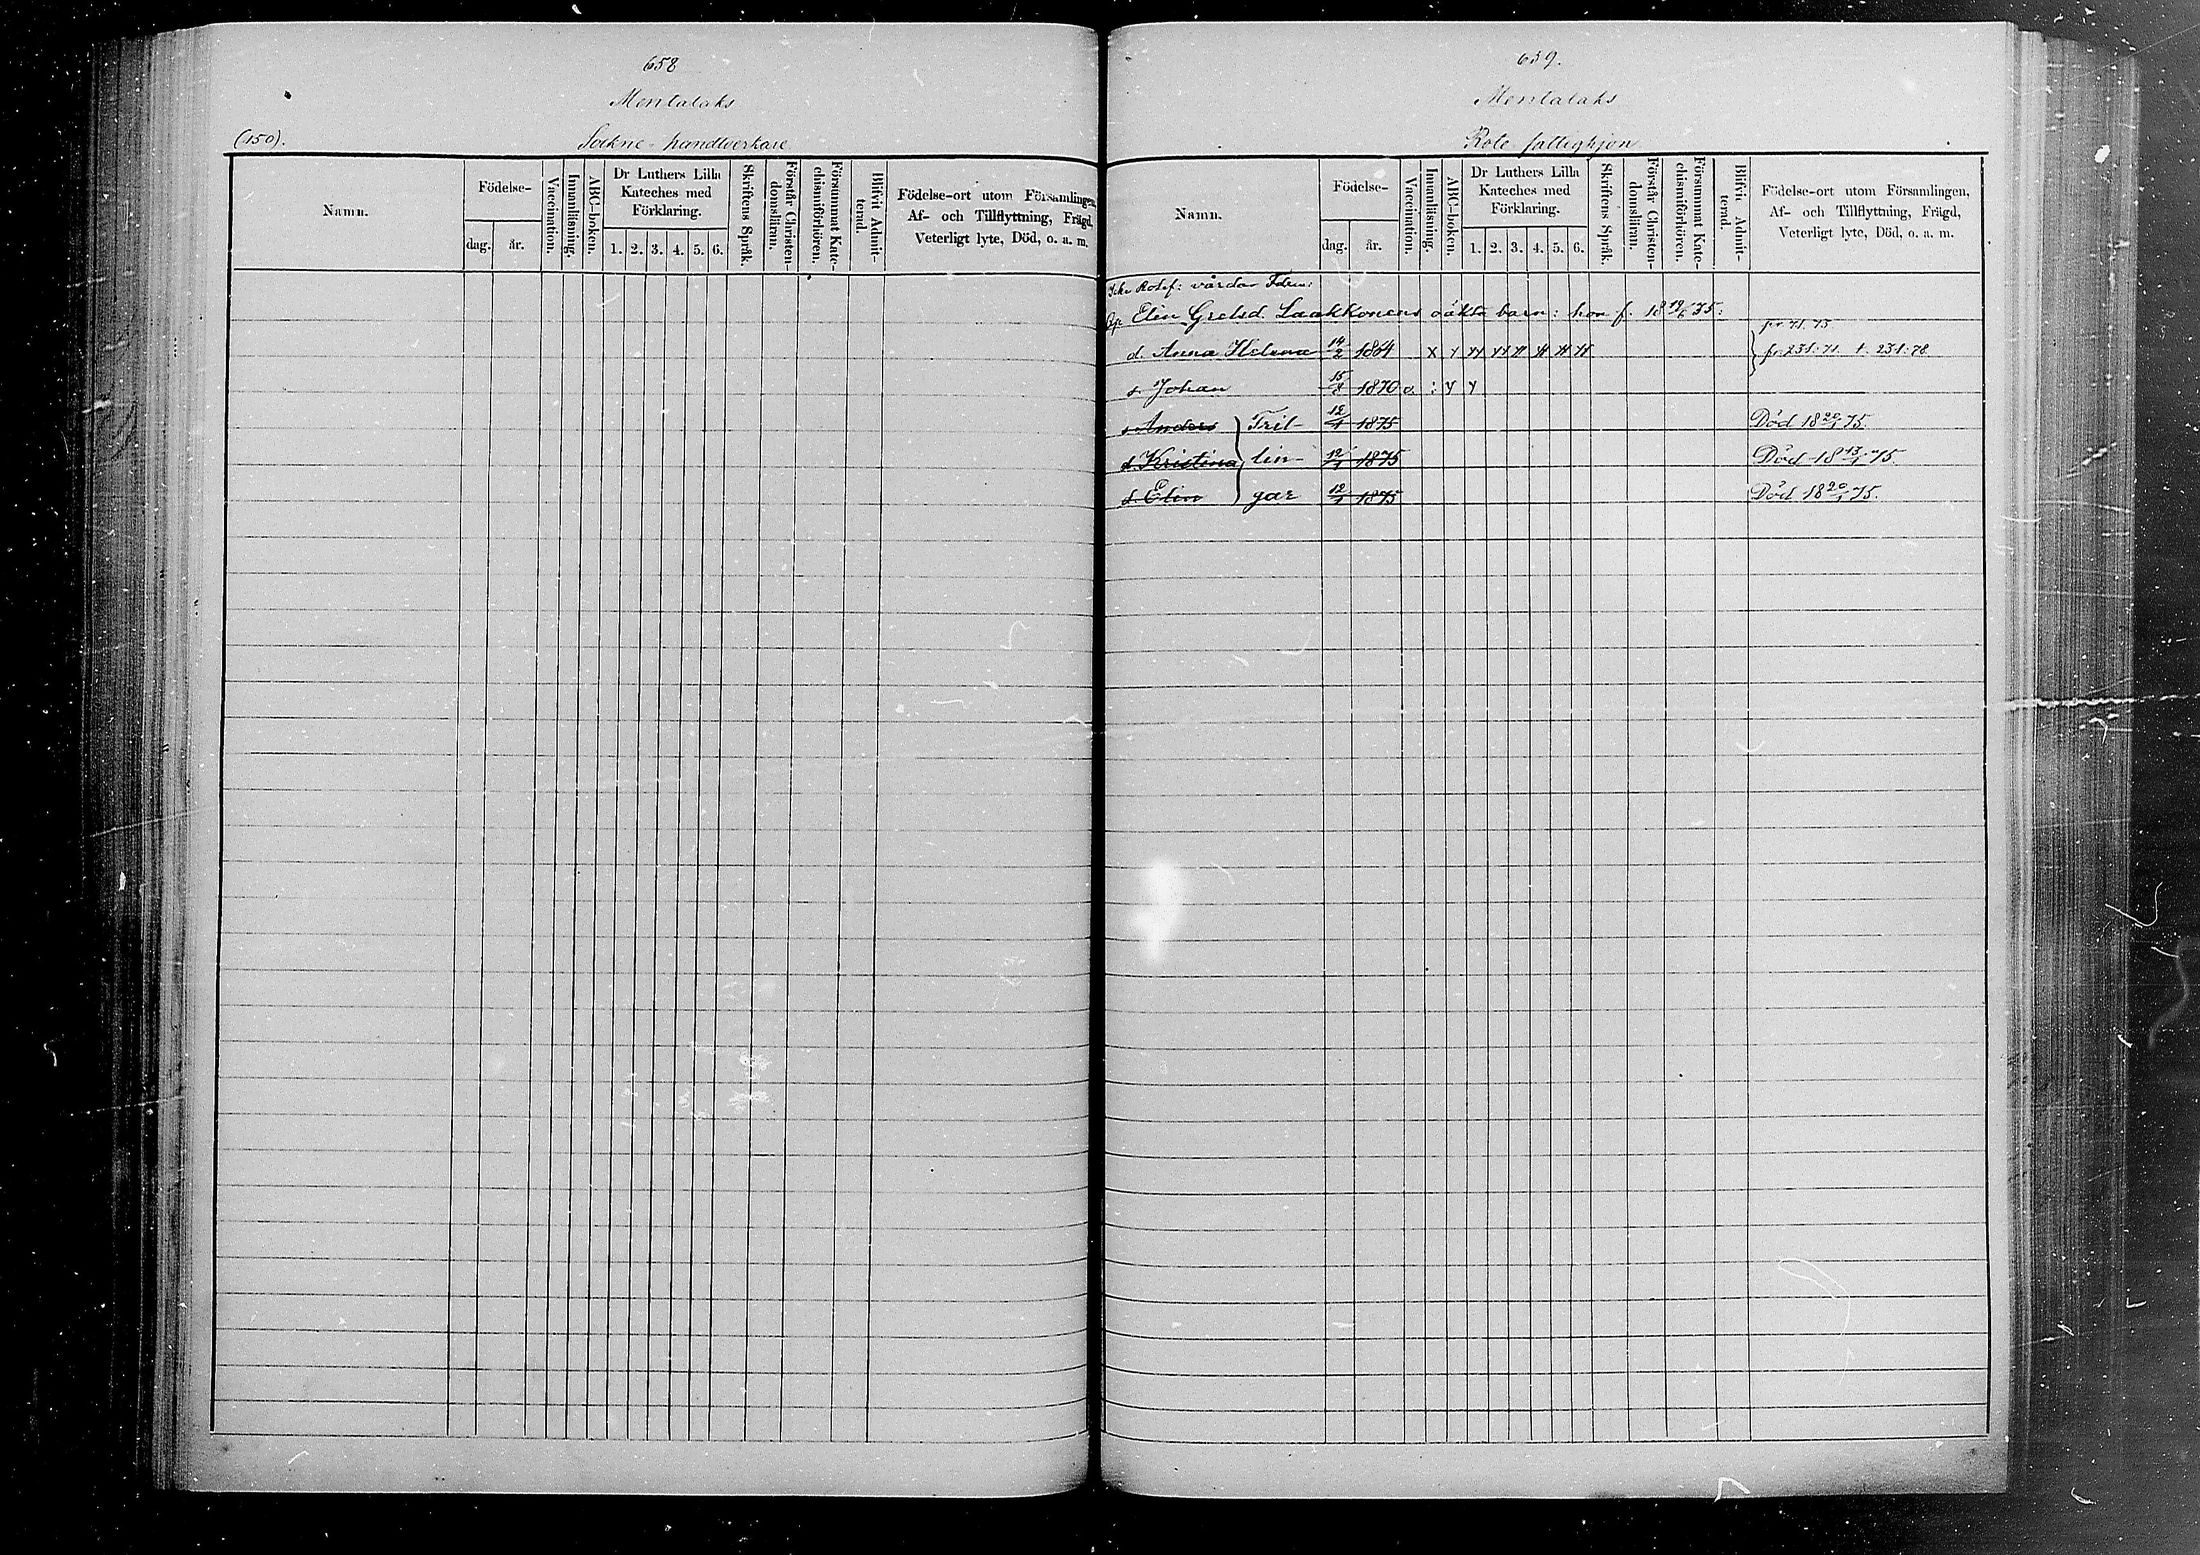 658
Mentalaks
(150). Sokne-handtverkare
Namn.
Födelse-
dag. år.
Vaccination.
Innanläsning.
ABC-boken.
Dr Luthers Lilla Kateches med Förklaring.
1. 2. 3. 4. 5. 6.
Skriftens Språk.
Förstår Christendomsläran.
Försummat Katechismiförhören.
Blifvit Admitterad.
Födelse-ort utom Församlingen,
Af- och Tillflyttning, Frägd,
Veterligt lyte, Död, o. a. m.
659.
Mentalaks
Rote fattighjon
Namn.
Födelse-
dag. år.
Vaccination.
Innanläsning.
ABC-boken.
Dr Luthers Lilla Kateches med Förklaring.
1. 2. 3. 4. 5. 6.
Skriftens Språk.
Förstår Christendomsläran.
Försummat Katechismiförhören.
Blifvit Admitterad.
Födelse-ort utom Församlingen,
Af- och Tillflyttning, Frägd,
Veterligt lyte, Död, o. a. m.
Icke Rotef: vårdar
Elin Grelsd. Laakkonens oäkta barn: hon f.
d. Anna Helena 14/2 1864 fr. 231:71. t. 231:78
s. Johan 15/8 1870
s Anders Tril- 12/1 1875 Död 18 20/1 75.
d. Kristina lin- 12/1 1875 Död 18 13/1 75.
d. Elin gar 12/1 1875 Död 18 20/1 75.